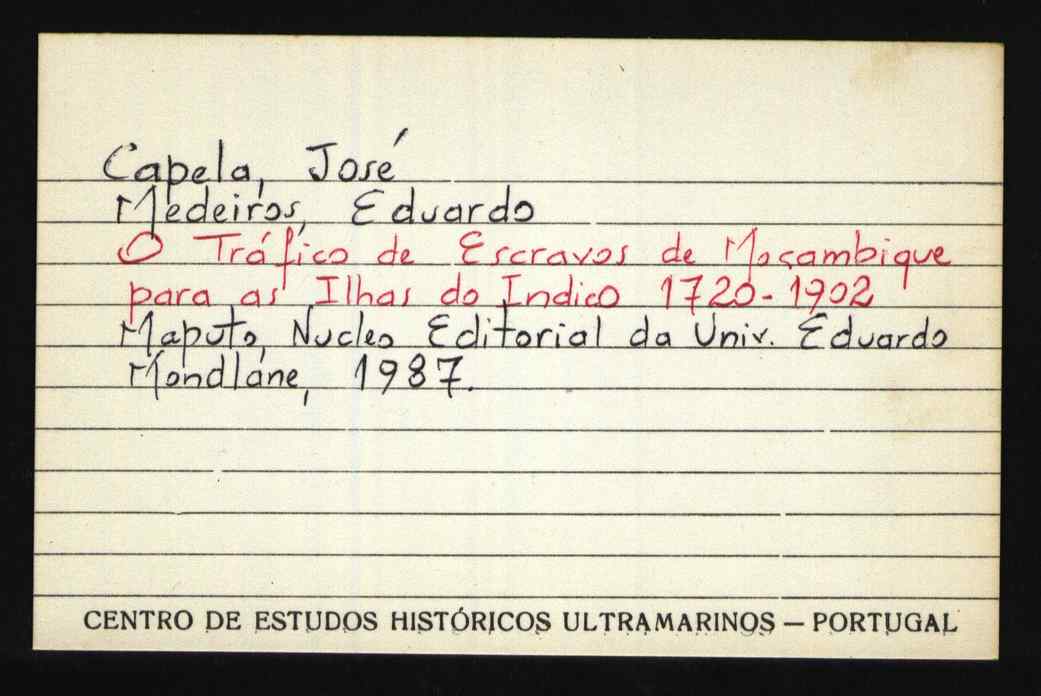 Capela, José
Medeiros, Eduardo
O Tráfico de Escravos de Moçambique
para as Ilhas do Indico 1720-1902
Maputo, Nucleo Editorial da Univ. Eduardo
Mondlane, 1987.
CENTRO DE ESTUDOS HISTÓRICOS ULTRAMARINOS — PORTUGAL